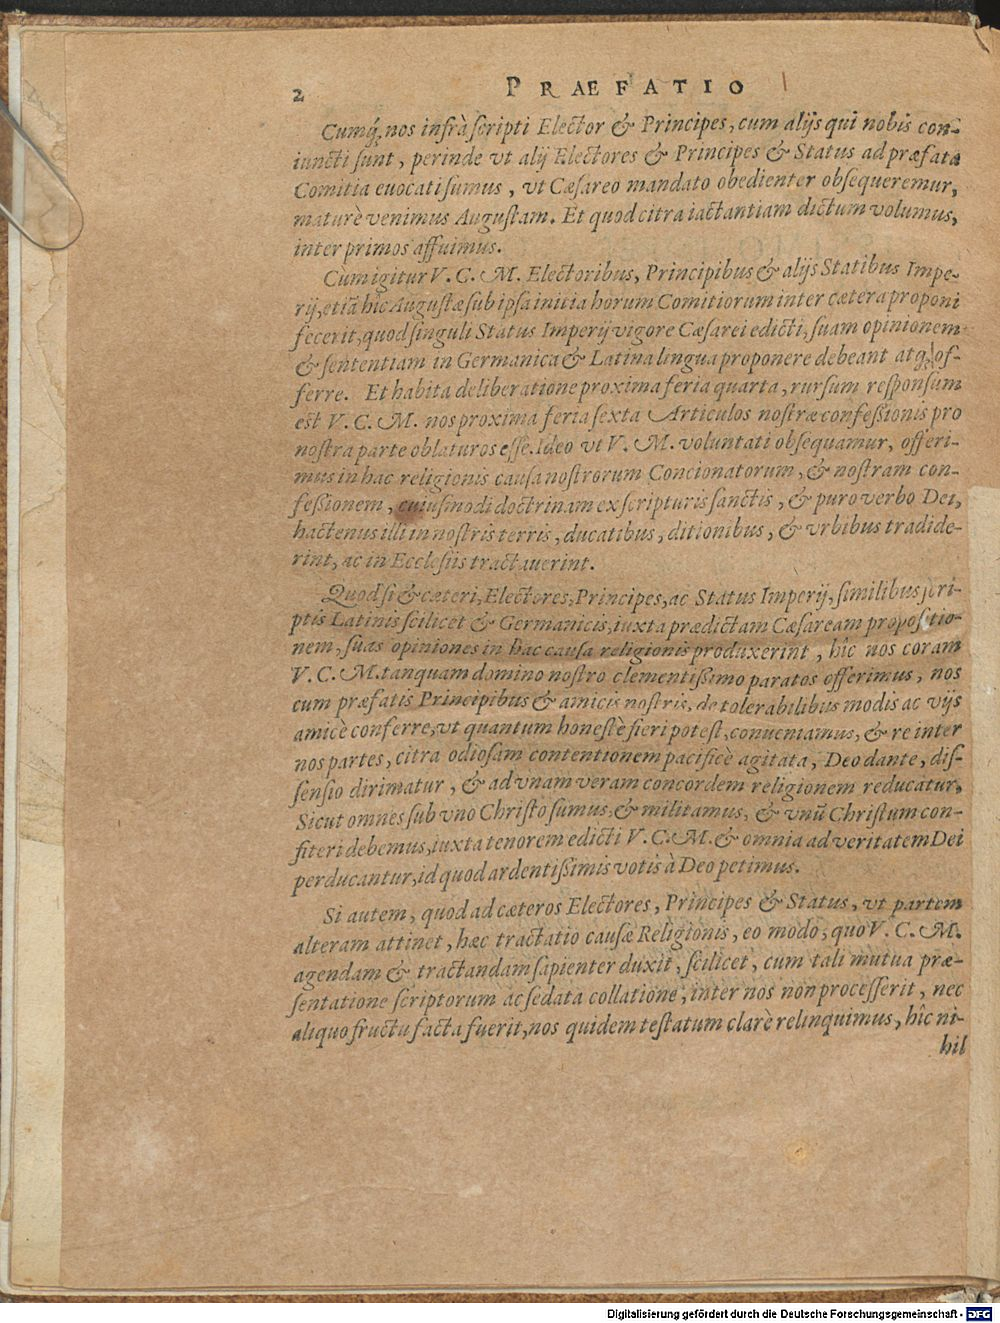 2 PRÆFATIO
Cumq́; nos infrà scripti Elector & Principes, cum alijs qui nobis con-
iuncti sunt, perinde vt alij Electores & Principes & Status ad præfata
Comitia euocati sumus, vt Cæsareo mandato obedienter obsequeremur,
maturè venimus Augustam. Et quod citra iactantiam dictum volumus,
inter primos affuimus.
Cùm igitur V. C. M. Electoribus, Principibus & alijs Statibus Impe-
rij, etiã hîc Augustæ sub ipsa initia horum Comitiorum inter cætera proponi
fecerit, quod singuli Status Imperij vigore Cæsarei edicti, suam opinionem
& sententiam in Germanica & Latina lingua proponere debeant atq; of-
ferre. Et habita deliberatione proxima feria quarta, rursum responsum
est V. C. M. nos proxima feria sexta Articulos nostræ confessionis pro
nostra parte oblaturos esse. Ideo vt V. M. voluntati obsequamur, offeri-
mus in hac religionis causa nostrorum Concionatorum, & nostram con-
fessionem, cuiusmodi doctrinam ex scripturis sanctis, & puro verbo Dei,
hactenus illi in nostris terris, ducatibus, ditionibus, & vrbibus tradide-
rint, ac in Ecclesiis tractauerint.
Quod si & cæteri, Electores, Principes, ac Status Imperij, similibus scri-
ptis Latinis scilicet & Germanicis, iuxta prædictam Cæsaream propositio-
nem, suas opiniones in hac causa religionis produxerint, hîc nos coram
V. C. M. tanquam domino nostro clementissimo paratos offerimus, nos
cum præfatis Principibus & amicis nostris, de tolerabilibus modis ac vijs
amicè conferre, vt quantum honestè fieri potest, conueniamus, & re inter
nos partes, citra odiosam contentionem pacificè agitata, Deo dante, dis-
sensio dirimatur, & ad vnam veram concordem religionem reducatur,
Sicut omnes sub vno Christo sumus & militamus, & vnũ Christum con-
fiteri debemus, iuxta tenorem edicti V. C. M. & omnia ad veritatem Dei
perducantur, id quod ardentissimis votis à Deo petimus.
Si autem, quod ad cæteros Electores, Principes & Status, vt partem
alteram attinet, hæc tractatio causæ Religionis, eo modo, quo V. C. M.
agendam & tractandam sapienter duxit, scilicet, cum tali mutua præ-
sentatione scriptorum ac sedata collatione, inter nos non processerit, nec
aliquo fructu facta fuerit, nos quidem testatum clarè relinquimus, hîc ni-
hil
Digitalisierung gefördert durch die Deutsche Forschungsgemeinschaft - DFG